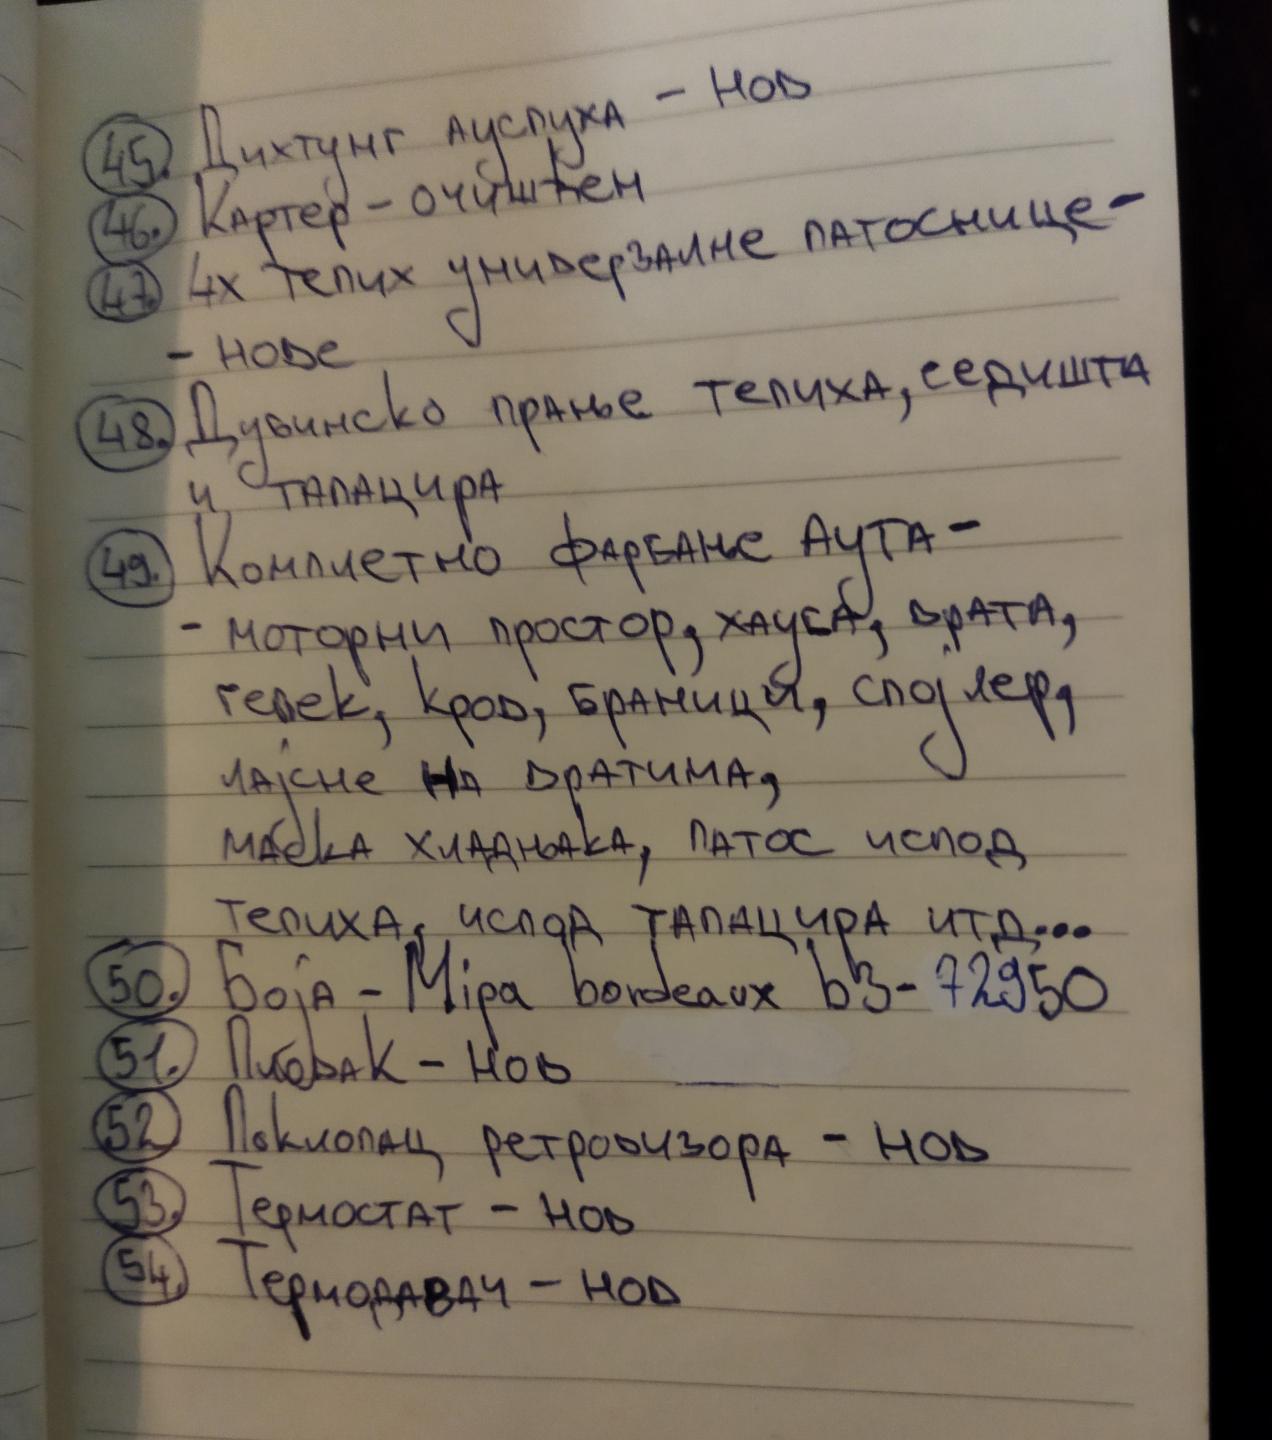 45. Дихтунг ауспуха - нов
46. Картер - очишћен
47. 4x тепих универзалне патоснице -
- нове
48. Дубинско прање тепиха, седишта
и тапацира
49. Комплетно фарбање аута -
- моторни простор, хауба, врата,
гепек, кров, браници, спојлер,
лајсне на вратима,
маска хладњака, патос испод
тепиха, испод тапацира итд...
50. Боја - Mipa bordeaux b3-72950
51. Пловак - нов
52 Поклопац ретровизора - нов
53. Термостат - нов
54. Термодавач - нов